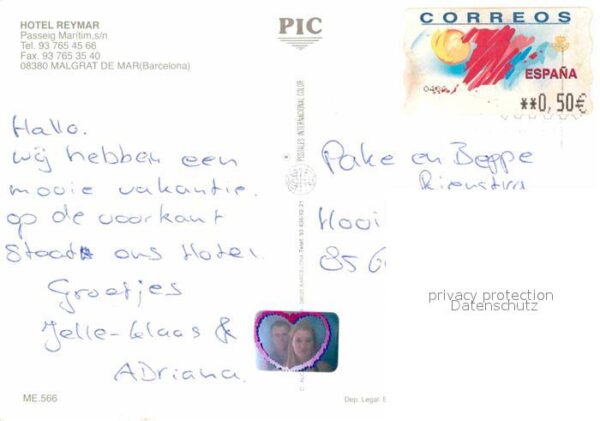 HOTEL REYMAR
Passeig Marítim,s/n
Tel. 93 765 45 66
Fax. 93 765 35 40
08380 MALGRAT DE MAR(Barcelona)
PIC
CORREOS
ESPAÑA
**0,50€
Hallo.
wij hebben een
mooie vakantie.
op de voorkant
staat ons Hotel.
Groetjes
Jelle-Klaas &
ADriana.
POSTALES INTERNATIONAL COLOR
Pake en Beppe
Rienstra
Hooi
856
privacy protection
Datenschutz
ME.566
Dep. Legal